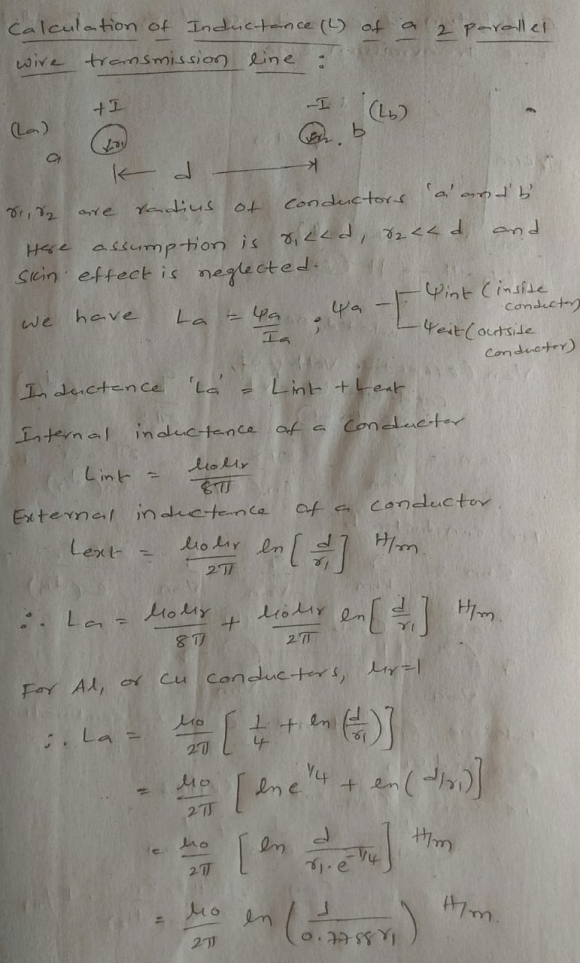 Calculation of Inductance (L) of a 2 parallel
wire transmission line :
+I -I (Lb)
(La) r1 r2
a b
d
r1, r2 are radius of conductors 'a' and 'b'
Here assumption is r1 << d, r2 << d and
skin effect is neglected.
we have La = ψa/Ia ; ψa - ψint (inside conductor)
ψext (outside conductor)
Inductance 'La' = Lint + Lext
Internal inductance of a conductor
Lint = μ0μr/8π
External inductance of a conductor
Lext = μ0μr/2π ln[d/r1] H/m
∴ La = μ0μr/8π + μ0μr/2π ln[d/r1] H/m.
For Al, or cu conductors, μr=1
∴ La = μ0/2π [1/4 + ln(d/r1)]
= μ0/2π [ln e^1/4 + ln(d/r1)]
= μ0/2π [ln d/r1.e^-1/4] H/m
= μ0/2π ln(d/0.7788r1) H/m.